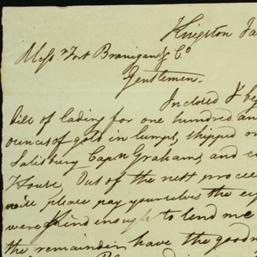 Kingston Ja
Messrs Fort Branigan & Co
Gentlemen.
Inclosed
Bill of lading for one hundred an
ounces of gold in lumps, shipped o
Salisbury Capn Graham, and c
House, Out of the nett procee
you'll please pay yourselves the
were kind enough to lend me
the remainder have the goodn